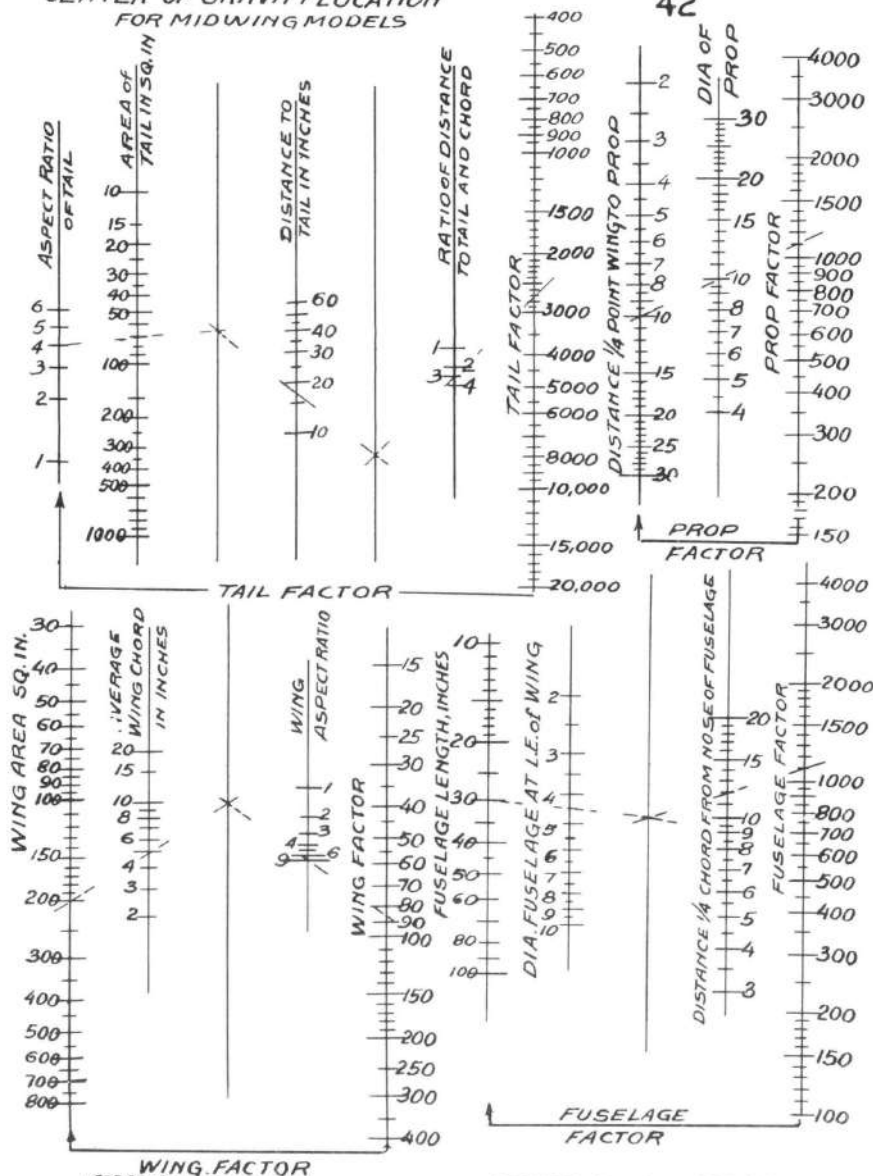 FOR MIDWING MODELS
42
ASPECT RATIO
OF TAIL
6
5
4
3
2
1
AREA of
TAIL IN SQ. IN
10
15
20
30
40
50
100
200
300
400
500
1000
DISTANCE TO
TAIL IN INCHES
60
40
30
20
10
RATIO OF DISTANCE
TO TAIL AND CHORD
1
2
3
4
TAIL FACTOR
400
500
600
700
800
900
1000
1500
2000
3000
4000
5000
6000
8000
10,000
15,000
20,000
TAIL FACTOR
DISTANCE 1/4 POINT WING TO PROP
2
3
4
5
6
7
8
10
15
20
25
30
DIA OF
PROP
30
20
15
10
8
7
6
5
4
PROP FACTOR
4000
3000
2000
1500
1000
900
800
700
600
500
400
300
200
150
PROP
FACTOR
WING AREA SQ. IN.
30
40
50
60
70
80
90
100
150
200
300
400
500
600
700
800
WING CHORD
IN INCHES
20
15
10
8
6
4
3
2
WING
ASPECT RATIO
1
2
3
4
6
9
WING FACTOR
15
20
30
40
50
60
70
80
90
100
150
200
250
300
400
WING FACTOR
FUSELAGE LENGTH, INCHES
10
20
30
40
50
60
80
100
DIA. FUSELAGE AT L.E. of WING
2
3
4
5
6
7
8
9
10
DISTANCE 1/4 CHORD FROM NOSE OF FUSELAGE
20
15
10
9
8
7
6
5
4
3
FUSELAGE FACTOR
4000
3000
2000
1500
1000
800
700
600
500
400
300
200
150
100
FUSELAGE
FACTOR